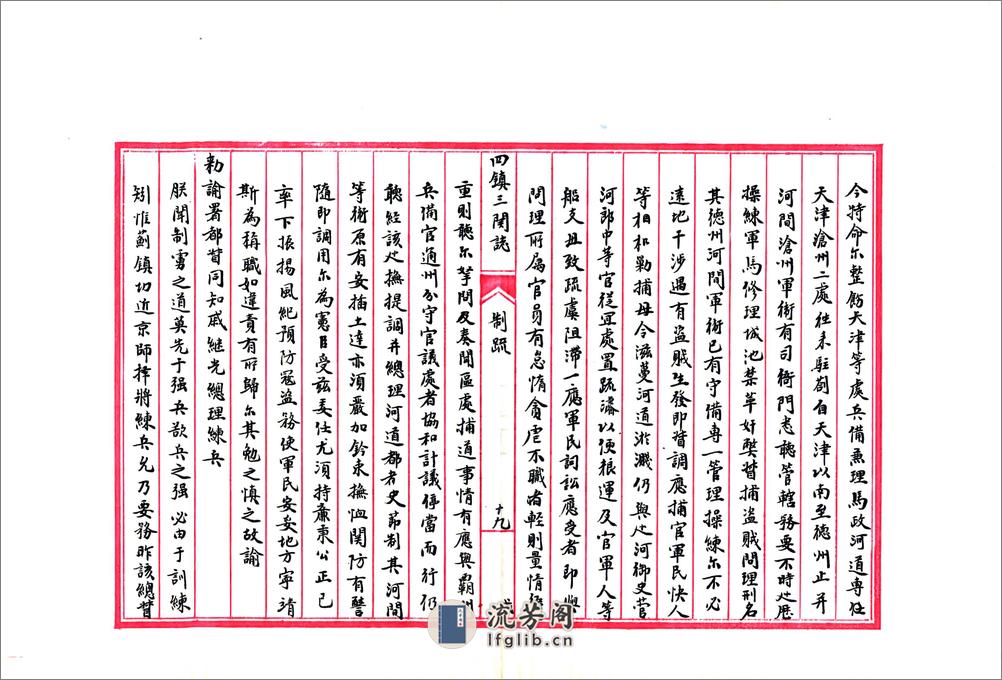 今特命尔整飭天津等處兵備兼理馬政河道專住
天津滄州二處往来駐劄自天津以南至德州止并
河間滄州軍衛有司衙門悉聽管轄務要不時廵歷
操練軍馬修理城池禁革奸獘督捕盗賊問理刑名
其德州河間軍衛已有守備專一管理操練尔不必
遠地干涉遇有盗賊生發即督調應捕官軍民快人
等相机勦捕毋令滋蔓河道淤溅仍與廵河御史管
河郎中等官從宜處置疏濬以便粮運及官軍人等
船支毋致疏虞阻滞一應軍民詞訟應受者即與
問理所属官員有怠惰貪虐不職者輕則量情發
四鎮三関誌
制疏
十九
重則聽尔拏問及奏聞區處捕道事情有應與霸州
兵備官通州分守官議處者協和計議停當而行仍
聽經該廵撫提調并總理河道都御史節制其河間
等衛原有安插土達亦須嚴加鈐束撫恤関防有警
隨即調用尔為憲臣受兹委任尤須持廉秉公正己
率下振揚風紀預防寇盗務使軍民安妥地方寧靖
斯為稱職如違責有所歸尔其勉之慎之故諭
勑諭署都督同知戚継光總理練兵
朕聞制虜之道莫先于强兵欲兵之强必由于訓練
矧惟薊鎮切近京師擇將練兵允乃要務昨該總督
流芳阁
lfglib.cn